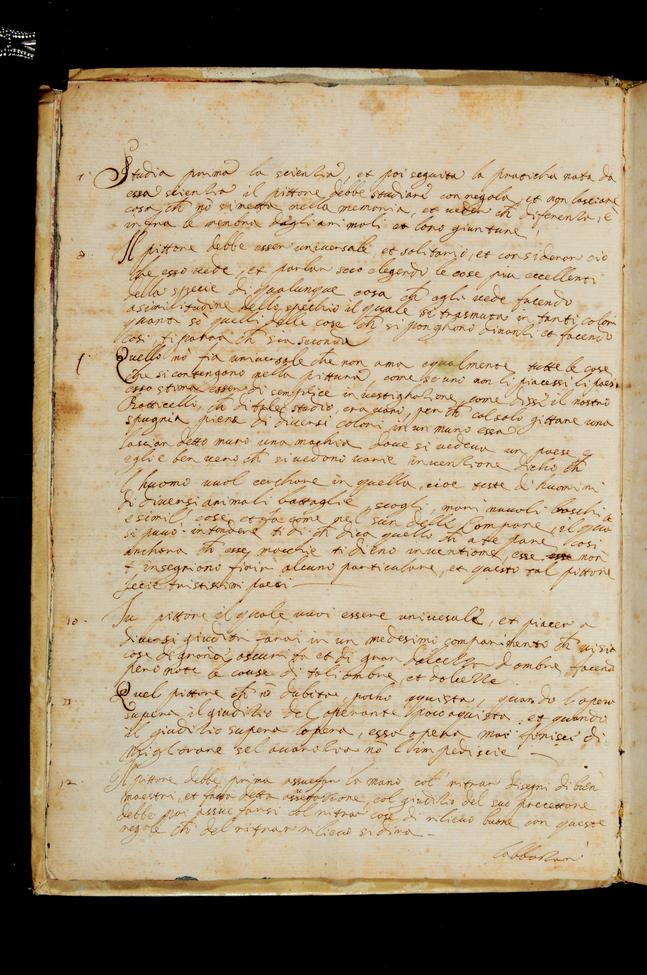 7. Studia prima la scientia, et poi seguita la praticha nata da
essa scientia il pittore debbe studiare con regola, et non lasciare
cosa ch nō si metta nella memoria, et veder ch diferentia, è
infra le membra degli animali et loro giunture
8 Il pittore debbe esser universale, et solitario, et considerar ciò
che esso vede, et parlar seco elegendo le cose più eccellenti
della specie di qualunque cosa ch egli vede facendo
a similitudine dello specchio il quale si trasmuta in tanti colori
quanti sō quelli delle cose ch si ponghono dinanti et facendo
così ti parra ch sia seconda
Quello nō fia universale che non ama egualmente tutte le cose
che si contengono nella pittura, come se uno non li piacessi li paesi
esso stima esser di semplice investigatione, come disse il nostro
Botticelli, ch di tale studio era vano, perch col solo gittare una
spugnia piena di diversi colori in un muro essa
lasciar detto muro una machia dove si vedeva un paese
egli è ben vero ch si vedono varie inventione di ciò ch
l'huomo vuol cerchare in quella, cioe teste d'huomini
di diversi animali battaglie, scogli, mari nuvoli boschi
e simil cose, et fa come nel suon delle Campane, il qua
si puoi intendere ti di ch dica quello ch a te pare, Così
anchora ch esse macchie ti dieno inventione, esse non
t insegniono finir alcuno particulare, et questo tal pittore
fecie tristissimi paesi
10. Tu pittore il quale vuoi essere universale, et piacer a
diversi giuditii farai in un medesimo componimento ch vi sia
cose di grand oscurita et di gran dolcezza d ombre, facendo
però note le cause di tal ombre, et dolcezze.
11 Quel pittore ch nō dubita pocho aquista, quando l'opera
supera il giuditio del operante poco aquista, et quando
il giuditio supera l'opera, essa opera mai finisci di
migliorare se l avaritia nō l impediscie
12. Il pittore debbe prima assuefar la mano col ritrar disegni di bon
maestri, et fatta detta col giuditio del suo precettore
debbe poi assuefarsi col ritrar cose di rilievo buone con queste
regole ch del ritrar rilievo si dira.